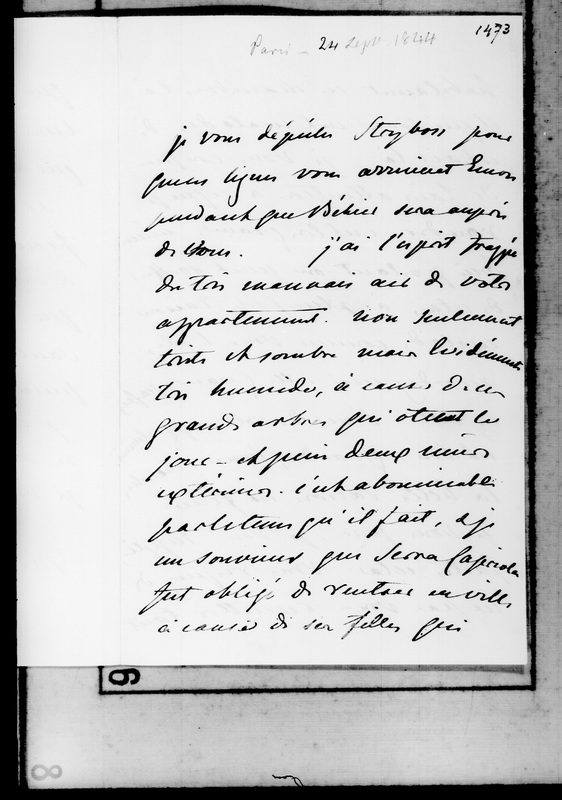 1473
Paris - 24 Sept 1844
je vous dépêche Stryboss pour
que ces lignes vous arrivent encore
pendant que Béhier sera auprès
de vous. j'ai l'esprit frappé
du très mauvais air de votre
appartement. non seulement
triste et sombre mais évidemment
très humide, à cause des
grands arbres qui ôtent le
jour - et puis deux murs
extérieurs. c'est abominable
par le tems qu'il fait, & je
me souviens que Serra Capriola
fut obligé de rentrer en ville
à cause de ses filles qui
6
8